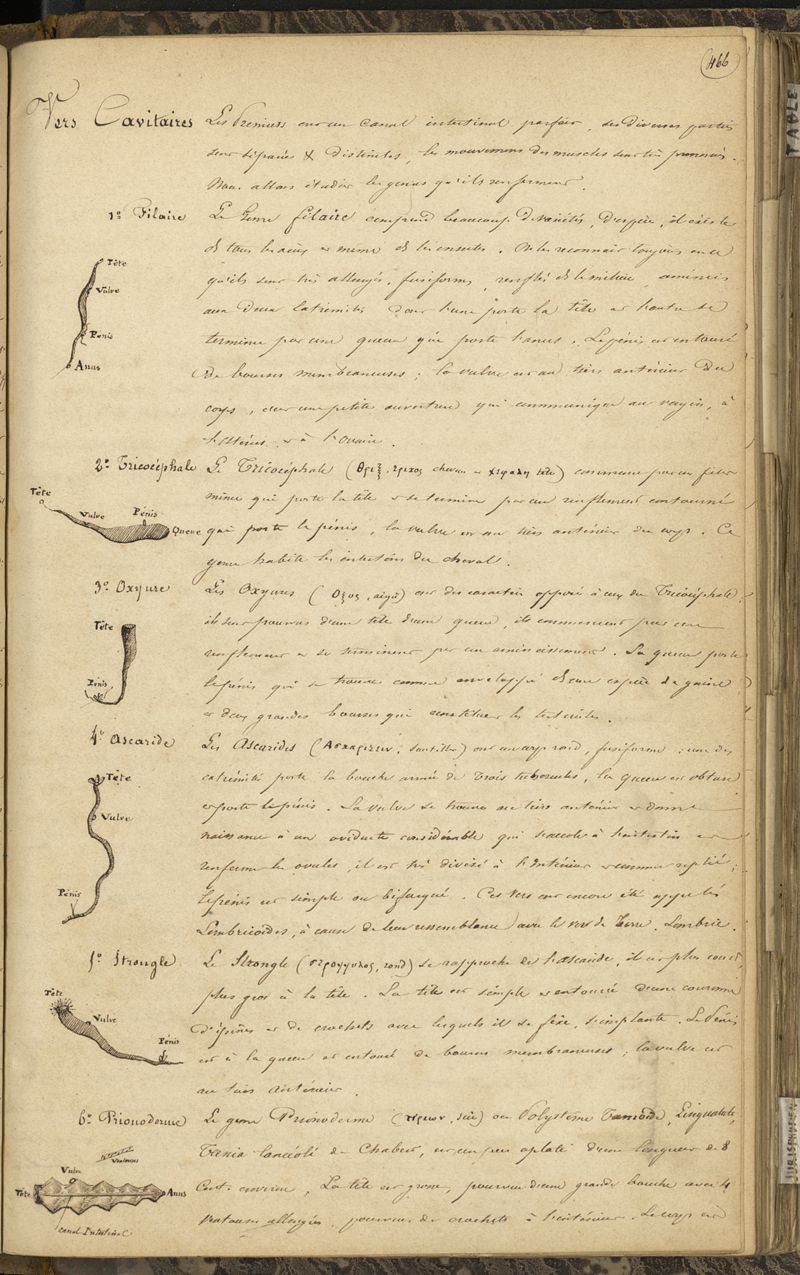 466
TABLE
Vers Cavitaires Les Premiers ont un canal intestinal parfait, ses diverses parties
sont séparées & distinctes, les mouvemens des muscles sont très prononcés.
Nous allons étudier les genres qu'ils renferment.
1º Filaire Le Genre filaire comprend beaucoup de variétés, d'espèce, il existe
ds tous les animaux et même ds les insectes. On les reconnait toujours en ce
qu'ils sont très allongés, fusiformes, renflés ds le milieu, amincis
aux deux extrémités dont l'une porte la tête et l'autre se
termine par une queue qui porte l'anus. Le pénis est entouré
de bourses membraneuses ; la vulve est au tiers antérieur du
corps, c'est une petite ouverture qui communique au vagin, à
l'utérus et à l'ovaire.
Tête
Vulve
Pénis
Anus
2º Tricocéphale Le Tricocéphale (θριξ, τριχος cheveu et κεφαλη tête) commence par un filet
mince qui porte la tête et se termine par un renflement contourné
qui porte le pénis, la vulve est au tiers antérieur du corps. Ce
genre habite les intestins du cheval.
Tête
Vulve
Pénis
Queue
3º Oxyure Les Oxyures (Οξυς, aigu) ont des caractères opposés à ceux du Tricocéphale,
ils sont pourvus d'une tête d'une queue, ils commencent par un
renflement et se terminent par un amincissement. La queue porte
le pénis qui se trouve comme enveloppé ds une espèce de gaîne
et deux grandes bourses qui constituent les testicules.
Tête
Pénis
4º Ascaride Les Ascarides (Ασκαριζειν, sautiller) ont un corps rond, fusiforme ; une des
extrémités porte la bouche armée de trois tubercules, la queue est obtuse
et porte le pénis. La vulve se trouve au tiers antérieur et donne
naissance à un oviducte considérable qui s'accole à l'intestin et
renferme les ovules, il est très divisé à l'intérieur et comme replié ;
le pénis est simple ou bifurqué. Ces vers ont encore été appelés
Lombricoïdes, à cause de leur ressemblance avec le vers de Terre. Lombric.
Tête
Vulve
Pénis
5º Strongle Le Strongle (στρογγυλος, rond) se rapproche de l'ascaride, il est plus court
plus gros à la tête. La tête est simple et entourée d'une couronne
d'épines et de crochets avec lesquels il se fixe, s'implante. Le Pénis
est à la queue et entouré de bourses membraneuses ; la vulve est
au tiers antérieur.
Tête
Vulve
Pénis
6º Prionoderme Le genre Prionoderme (πριων, scie) ou Polystome Tænioïde, Linguatule,
Tænia lancéolé de Chabert, est un peu aplati d'une longueur de 8
Cent. environ, La tête est grosse, pourvue d'une grande bouche avec 4
allongées, pourvues de crochets à l'extérieur. Le corps est
Vulve
Tête
Anus
Canal Intestinal
JURISPRUDEN